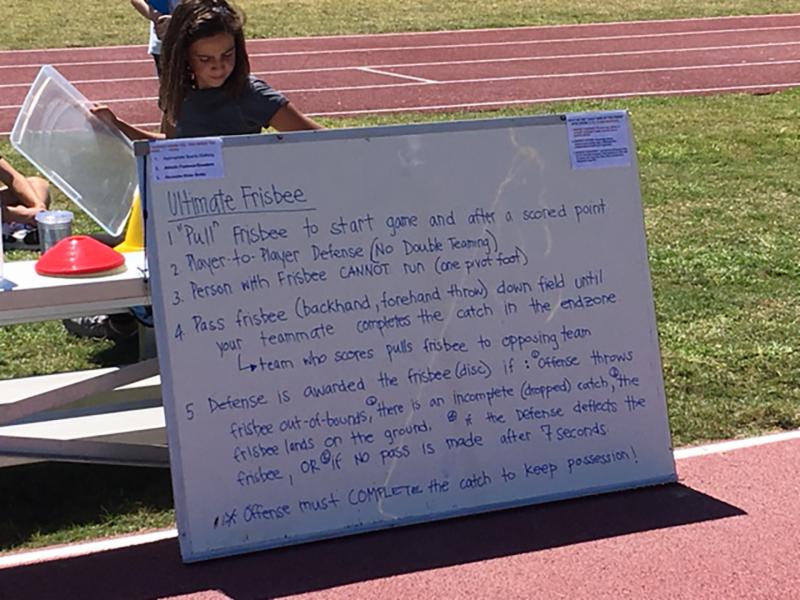 1. Appropriate Sports Clothing
Ultimate Frisbee
1 "Pull" Frisbee to start game and after a scored point
2 Player-to-Player Defense (No Double Teaming)
3. Person with Frisbee CANNOT run (one pivot foot)
4. Pass frisbee (backhand, forehand throw) down field until
your teammate completes the catch in the endzone
↳ team who scores pulls frisbee to opposing team
5 Defense is awarded the frisbee (disc) if : ① Offense throws
frisbee out-of-bounds, ② there is an incomplete (dropped) catch, ③ the
frisbee lands on the ground, ④ if the Defense deflects the
frisbee, OR ⑤ if NO pass is made after 7 seconds.
* Offense must COMPLETE the catch to keep possession!